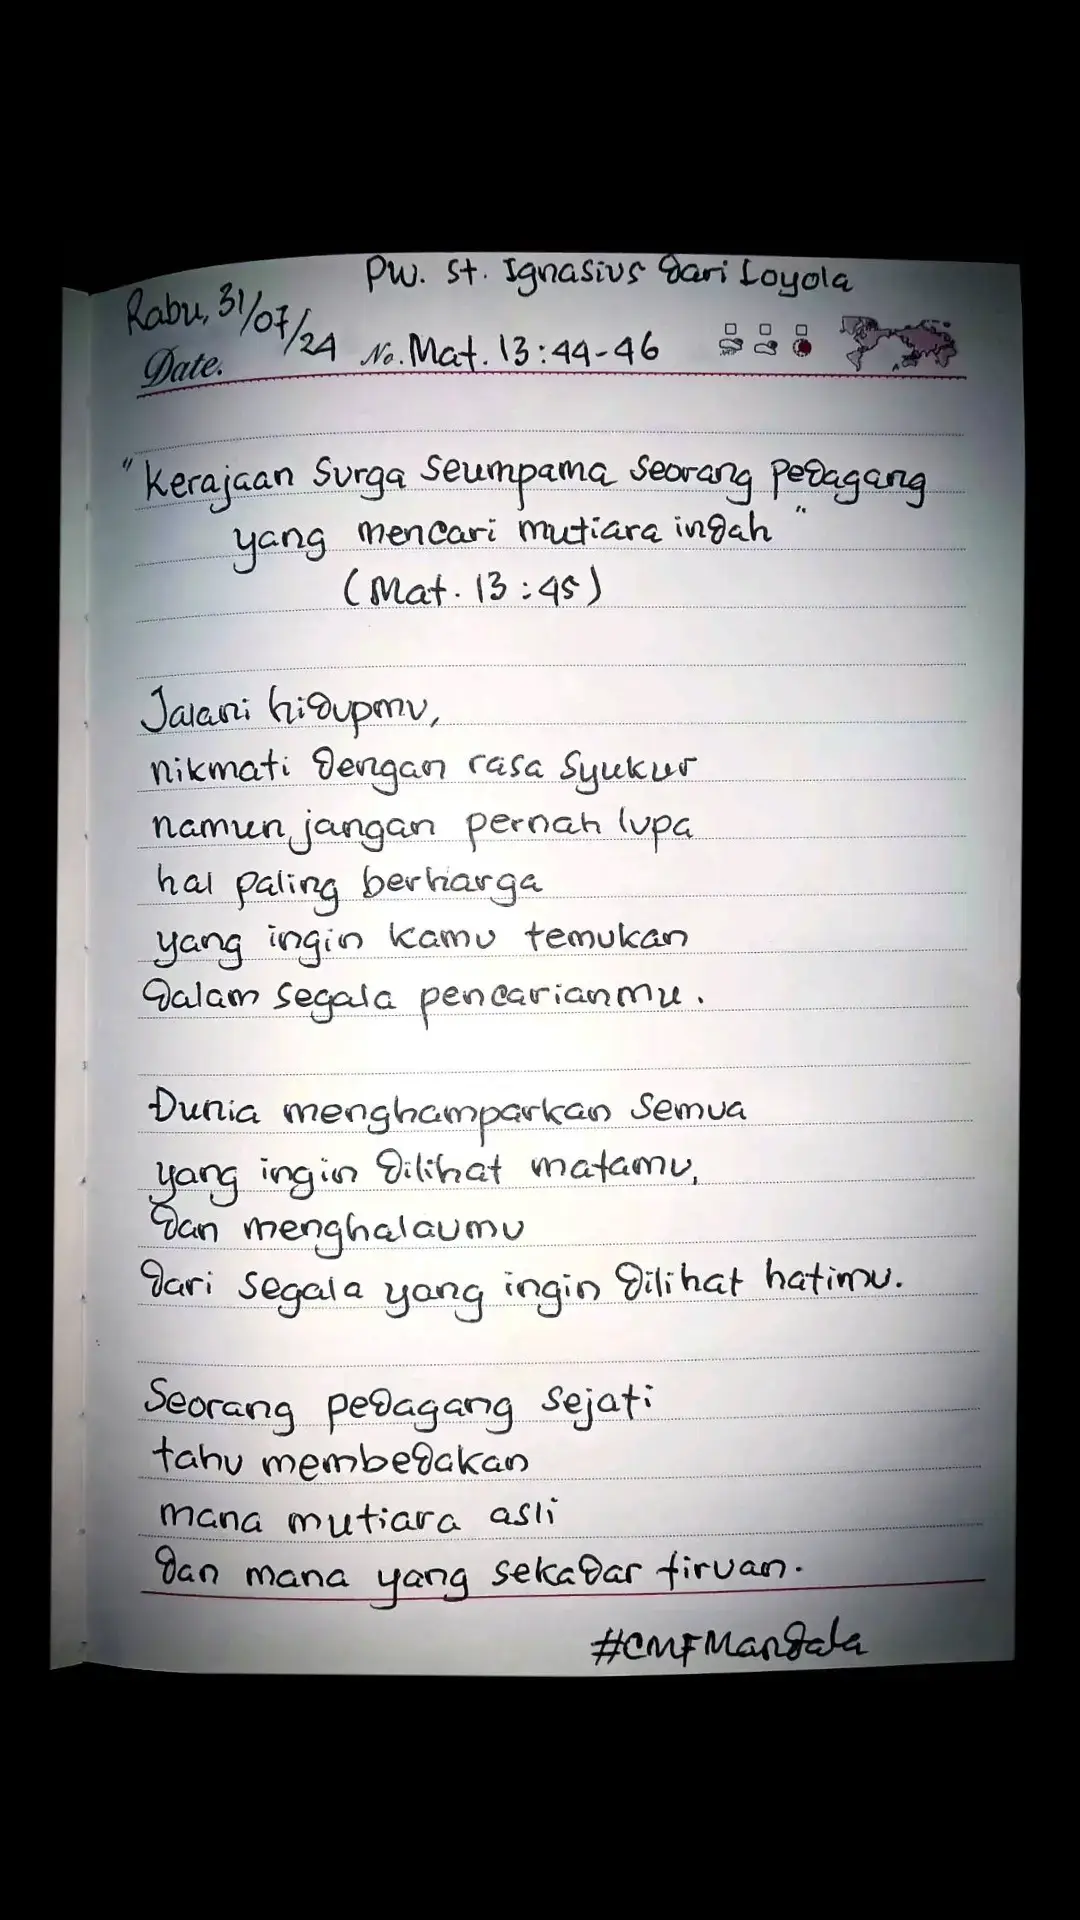 Pw. St. Ignasius dari Loyola
Rabu, 31/07/24
Date.
No. Mat. 13:44-46
"Kerajaan Surga seumpama seorang pedagang
yang mencari mutiara indah"
(Mat. 13:45)
Jalani hidupmu,
nikmati dengan rasa syukur
namun jangan pernah lupa
hal paling berharga
yang ingin kamu temukan
dalam segala pencarianmu.
Dunia menghamparkan semua
yang ingin dilihat matamu,
dan menghalaumu
dari segala yang ingin dilihat hatimu.
Seorang pedagang sejati
tahu membedakan
mana mutiara asli
dan mana yang sekadar tiruan.
#CMFMandala